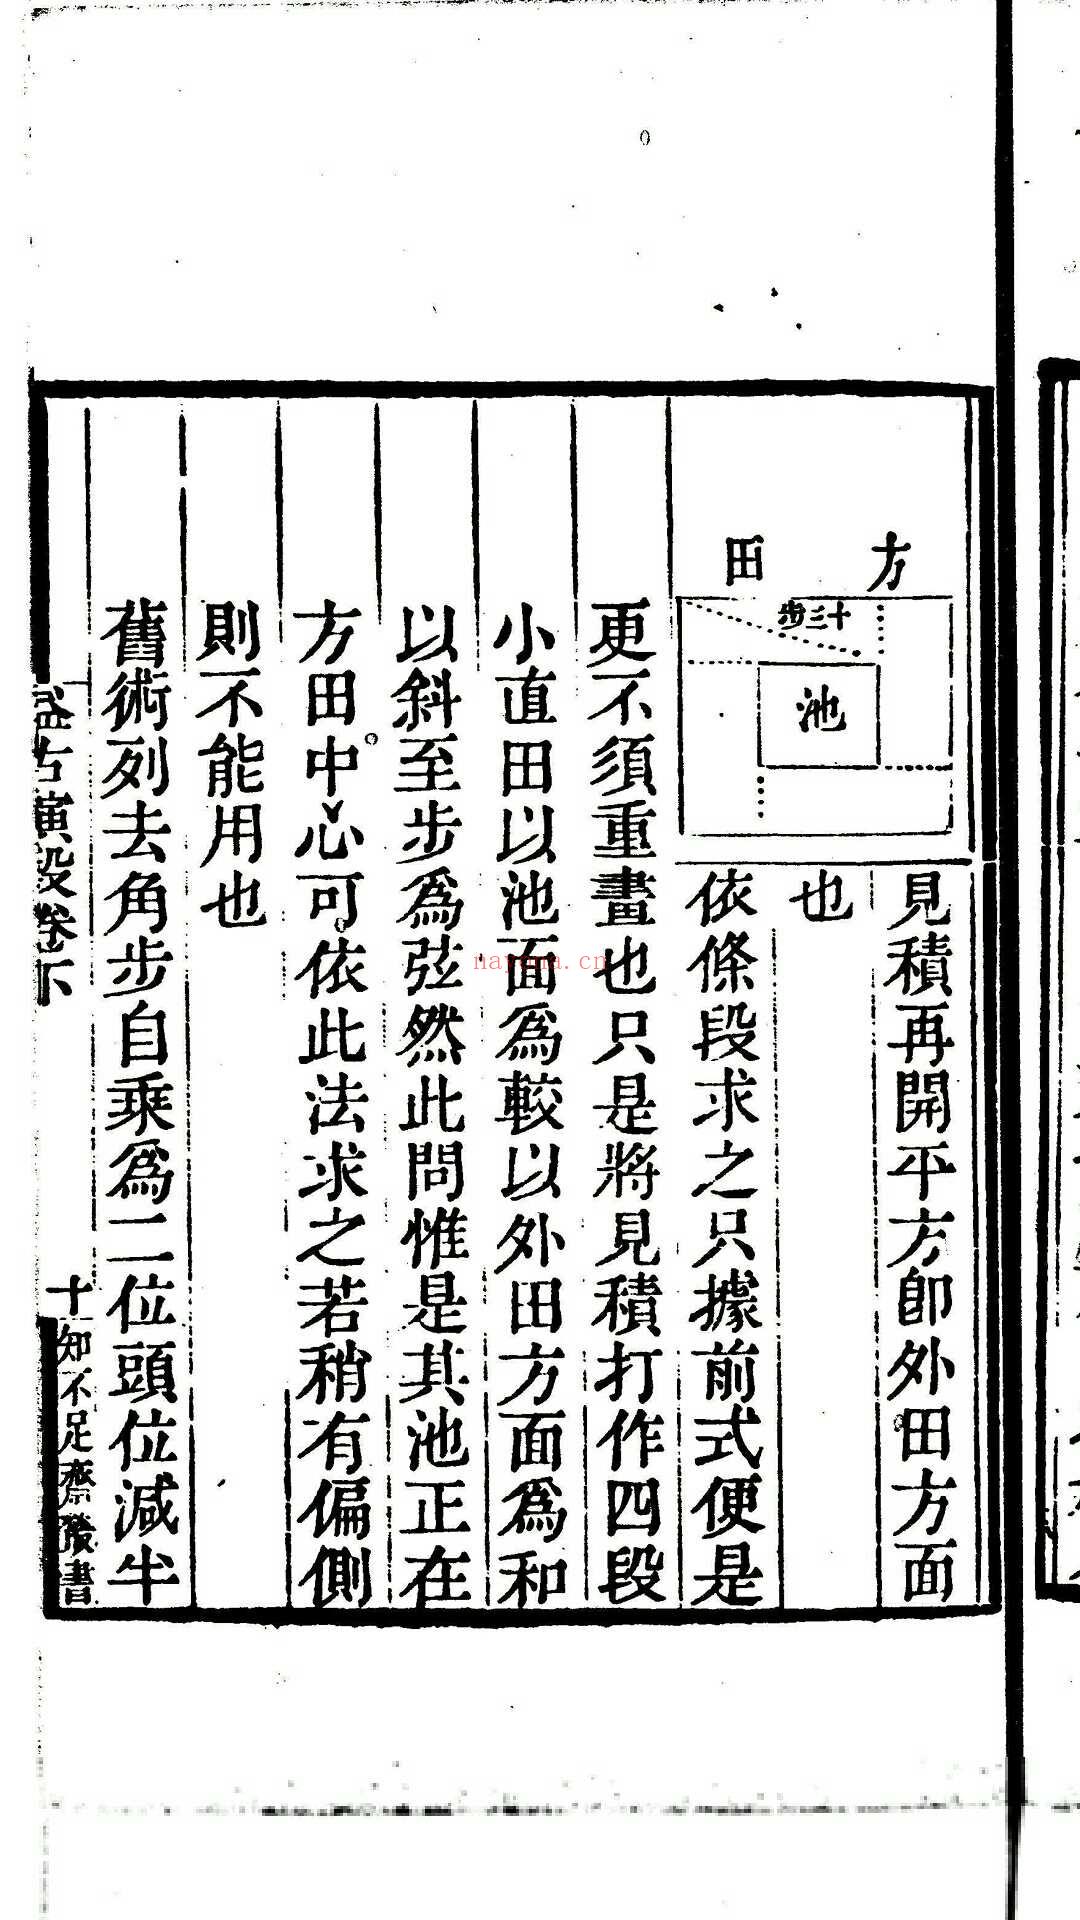 方田
十三步
池
見積再開平方卽外田方面
也
依條段求之只據前式便是
更不須重畫也只是將見積打作四段
小直田以池面爲較以外田方面爲和
以斜至步爲弦然此問惟是其池正在
方田中心可依此法求之若稍有偏側
則不能用也
舊術列去角步自乘爲二位頭位減半
益古演段卷下
十
知不足齋叢書
nayona.cn